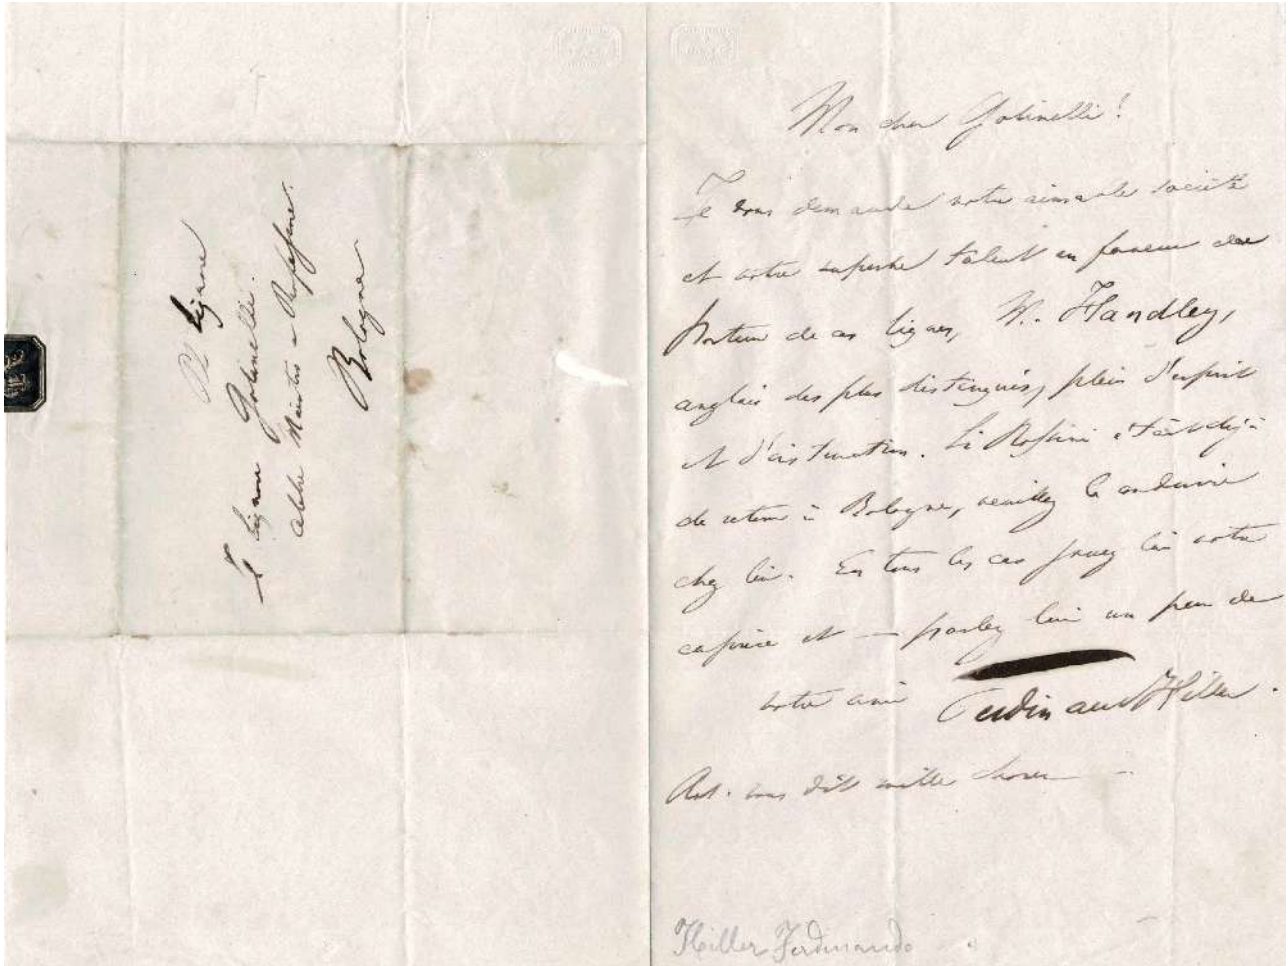 Al Signore
Il Signore Golinelli.
celebre Maestro e Professore.
Bologna
Mon cher Golinelli!
Je vous demande votre aimable société
et votre superbe talent en faveur du
porteur de ces lignes, M. Handley,
anglais des plus distingués, plein d'esprit
et d'instruction. Si Rossini était déjà
de retour à Bologne, veuillez le conduire
chez lui. En tous les cas jouez lui votre
caprice et — parlez lui un peu de
votre ami Ferdinand Hiller.
vous dit mille choses —
Hiller Ferdinando